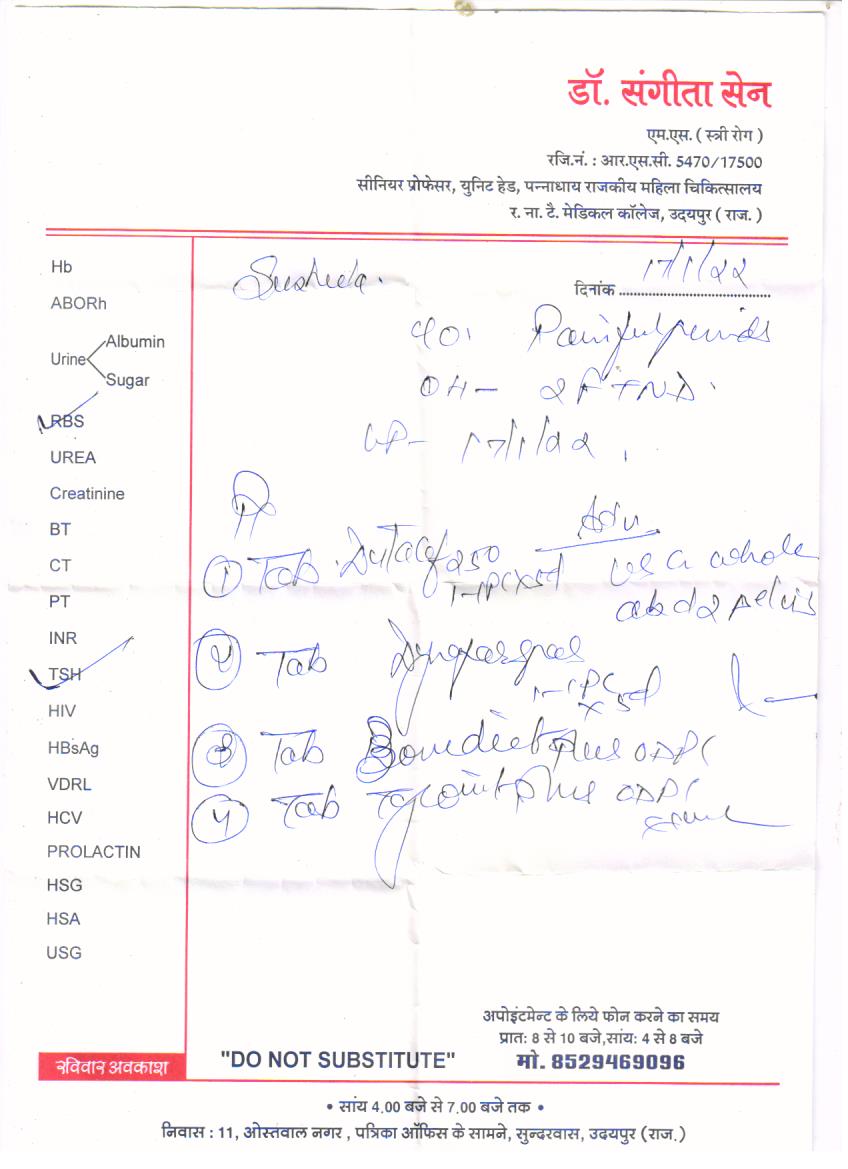 डॉ. संगीता सेन
एम.एस. ( स्त्री रोग )
रजि.नं. : आर.एस.सी. 5470/17500
सीनियर प्रोफेसर, युनिट हेड, पन्नाधाय राजकीय महिला चिकित्सालय
र. ना. टै. मेडिकल कॉलेज, उदयपुर ( राज. )
दिनांक 17/1/22
Painful periods
OH - 2FTND.
LP - 17/1/22
Hb
ABORh
Urine
Albumin
Sugar
RBS
UREA
Creatinine
BT
CT
PT
INR
TSH
HIV
HBsAg
VDRL
HCV
PROLACTIN
HSG
HSA
USG
Adv
① Tab 250
whole
abd & pelvis
② Tab
③ Tab Plus OD PC
④ Tab plus OD PC
अपोइंटमेन्ट के लिये फोन करने का समय
प्रात: 8 से 10 बजे,सांय: 4 से 8 बजे
मो. 8529469096
रविवार अवकाश
"DO NOT SUBSTITUTE"
• सांय 4.00 बजे से 7.00 बजे तक •
निवास : 11, ओस्तवाल नगर , पत्रिका ऑफिस के सामने, सुन्दरवास, उदयपुर (राज.)